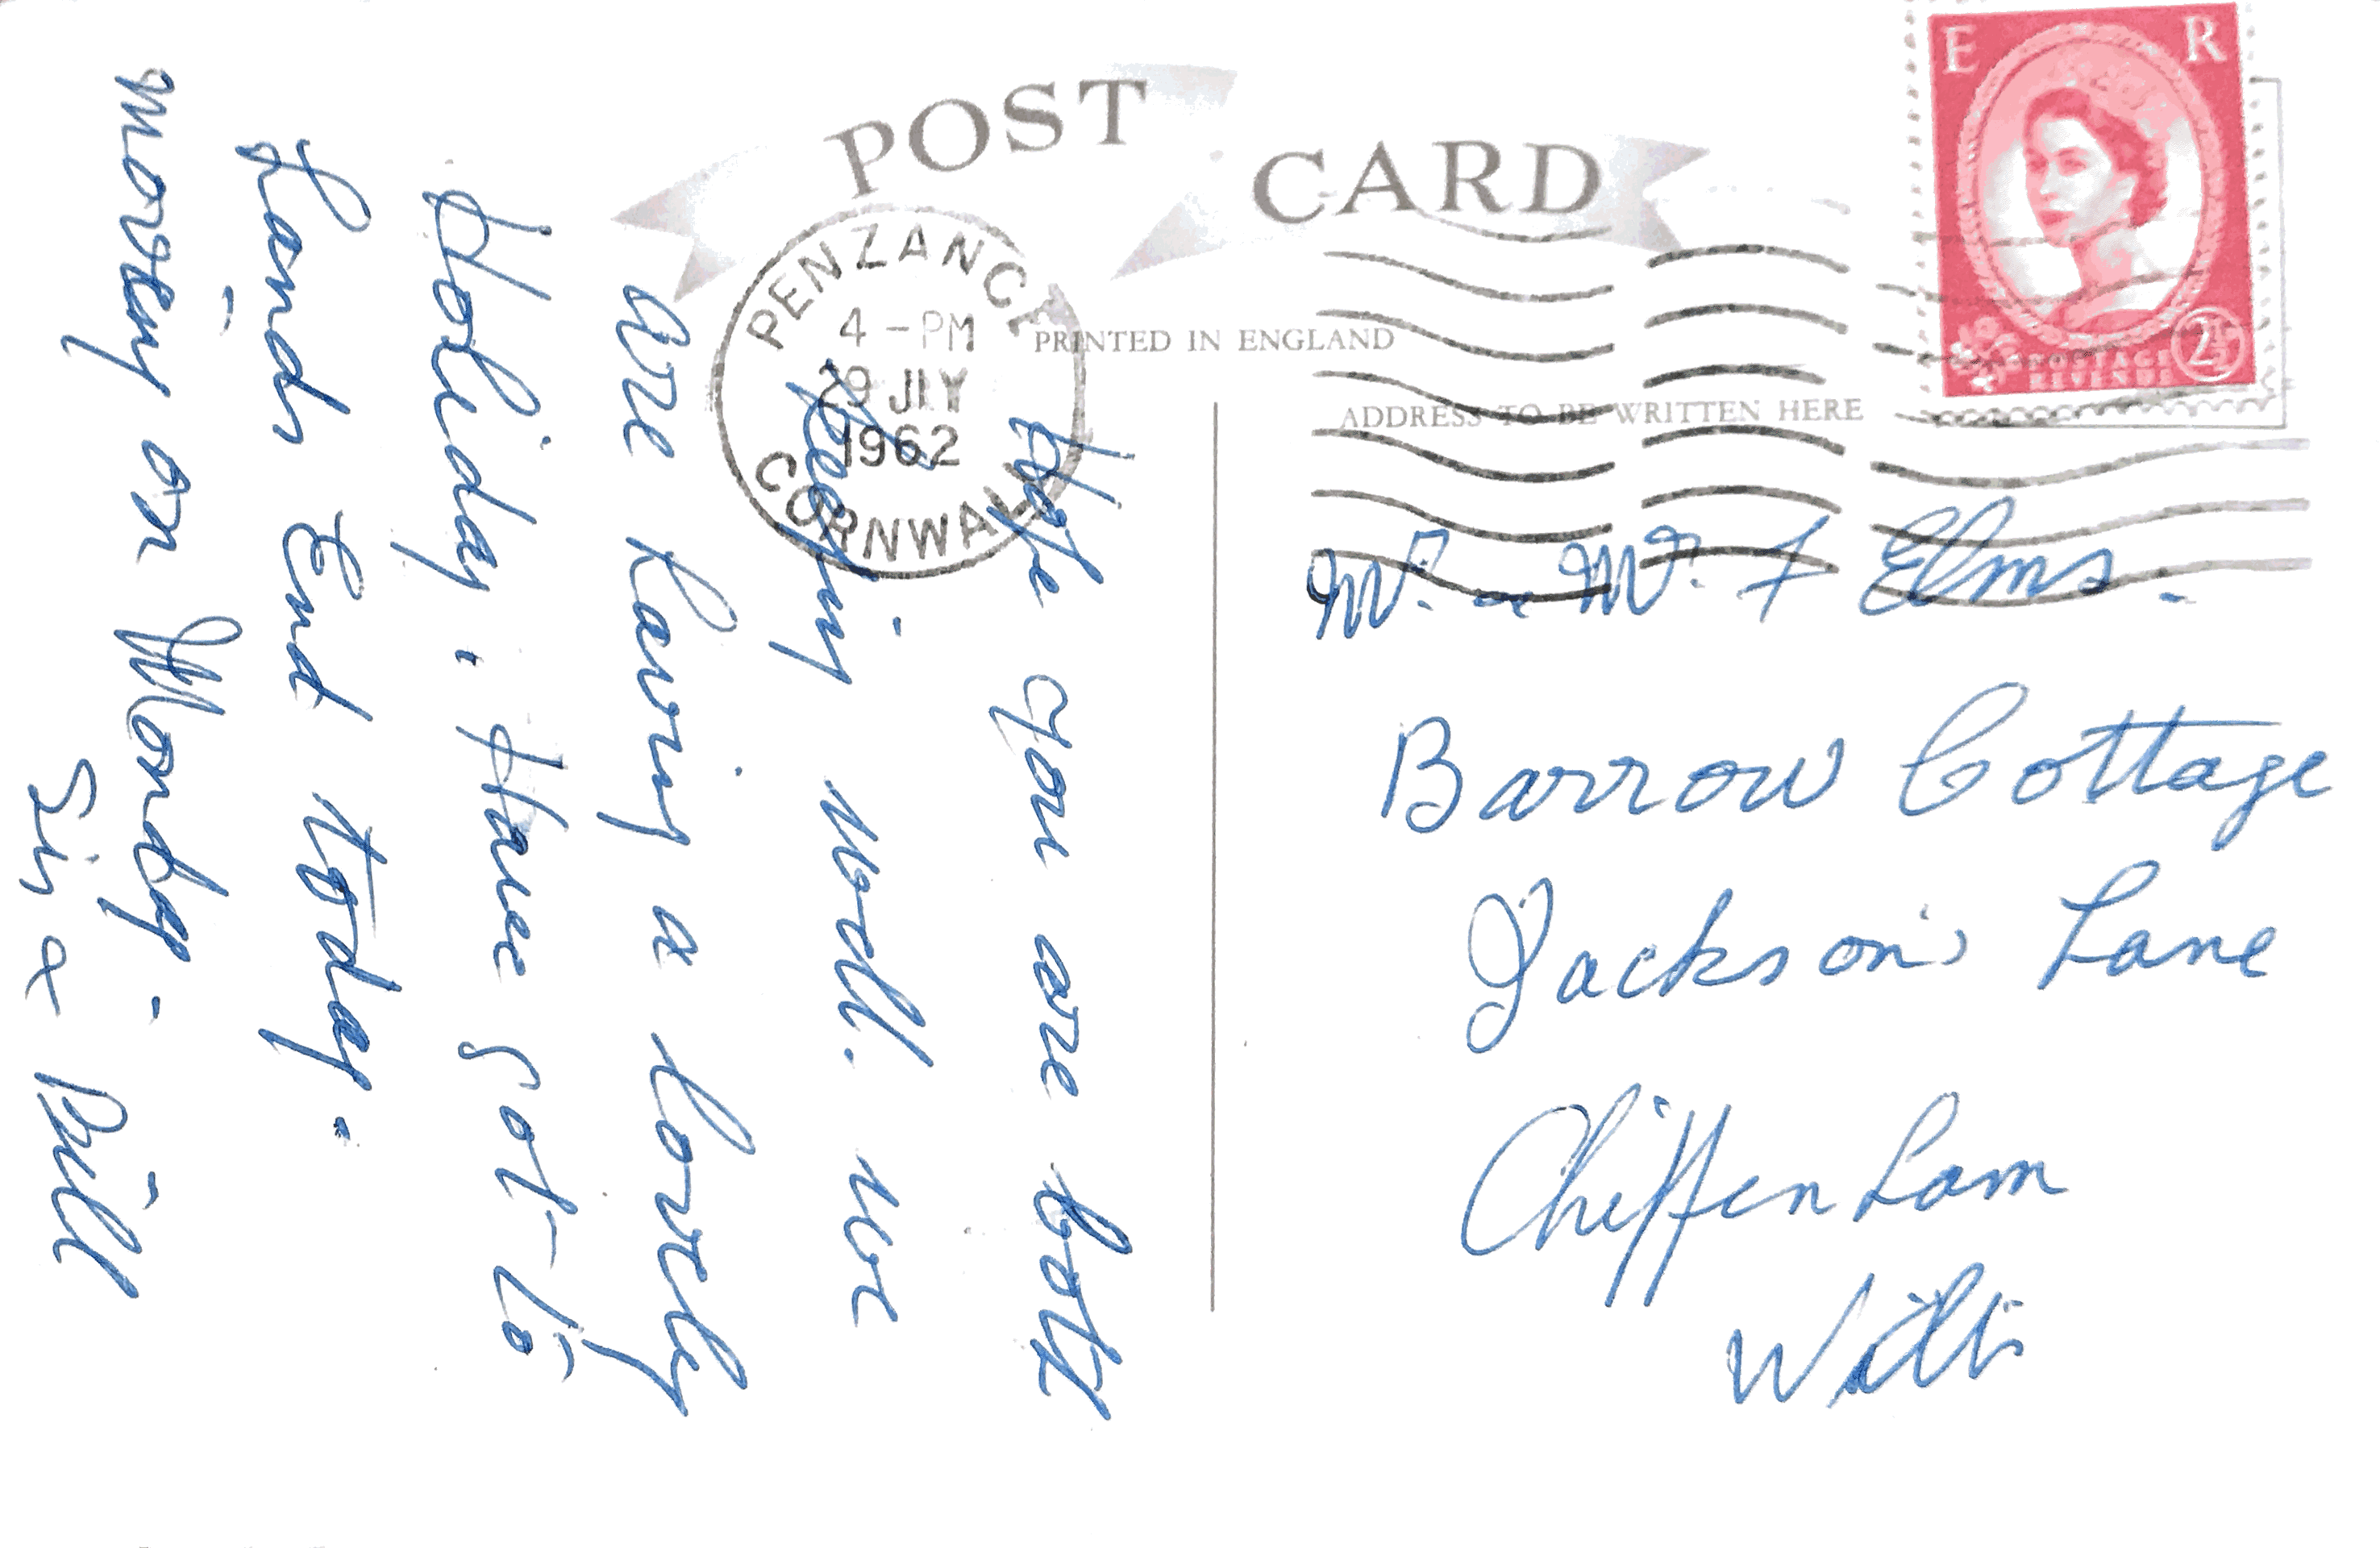 POST CARD
PENZANCE
4 - PM
29 JLY
1962
CORNWALL
PRINTED IN ENGLAND
ADDRESS TO BE WRITTEN HERE
E R
POSTAGE
REVENUE
2½
Hope you are both
keeping well. we
are having a lovely
Holiday. Have got to
Lands End today.
moving on Monday.
Sis & Bill
Mr. & Mrs. F Elms.
Barrow Cottage
Jackson's Lane
Chippenham
Wilts